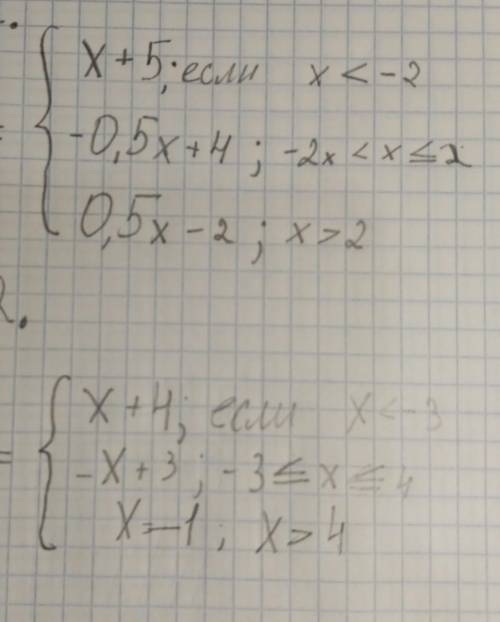 x + 5; если x < -2
-0,5x + 4; -2x < x ≤ 2
0,5x - 2; x > 2
2.
= x + 4; если x < -3
-x + 3; -3 ≤ x ≤ 4
x - 1; x > 4